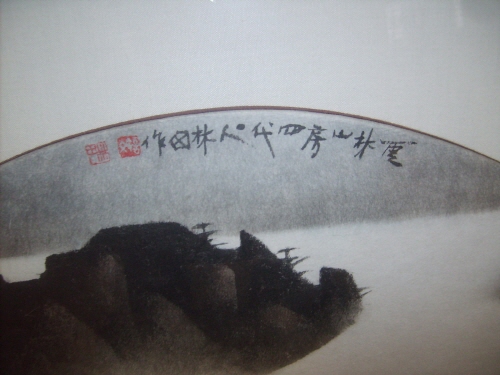 林山房四代人林作